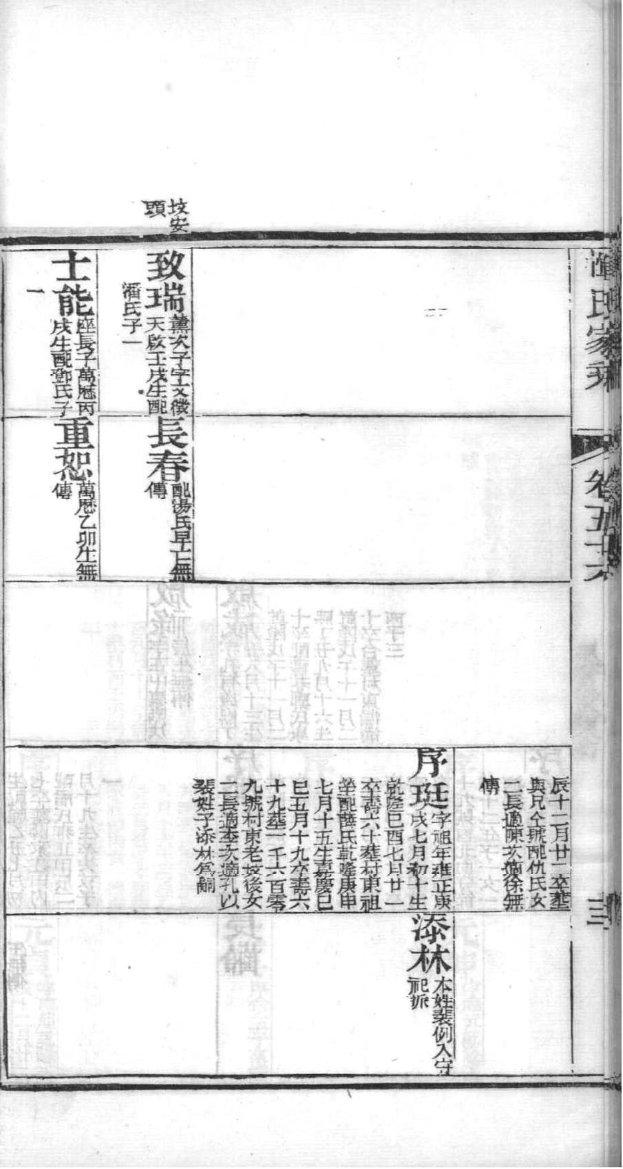 氏家乘
卷五十六
三
坟安
頭
致瑞
次子字文徵
天啟壬戌生配
潘氏子一
士能
座長子萬曆丙
戌生配鄧氏子
一
長春
配湯氏早亡無
傳
重恕
萬曆乙卯生無
傳
辰十二月廿一卒葬
與兄仝號配仇氏女
二長適陳次適徐無
傳
序珽
字旭年雍正庚
戌七月初十生
乾隆己酉七月廿一
卒壽六十葬村東祖
塋配薛氏乾隆庚申
七月十五生嘉慶己
巳五月十九卒壽六
十九葬一千六百零
九號村東老坟後女
二長適李次適孔以
裴姓子添林為嗣
添林
本姓裴例入守
祀派